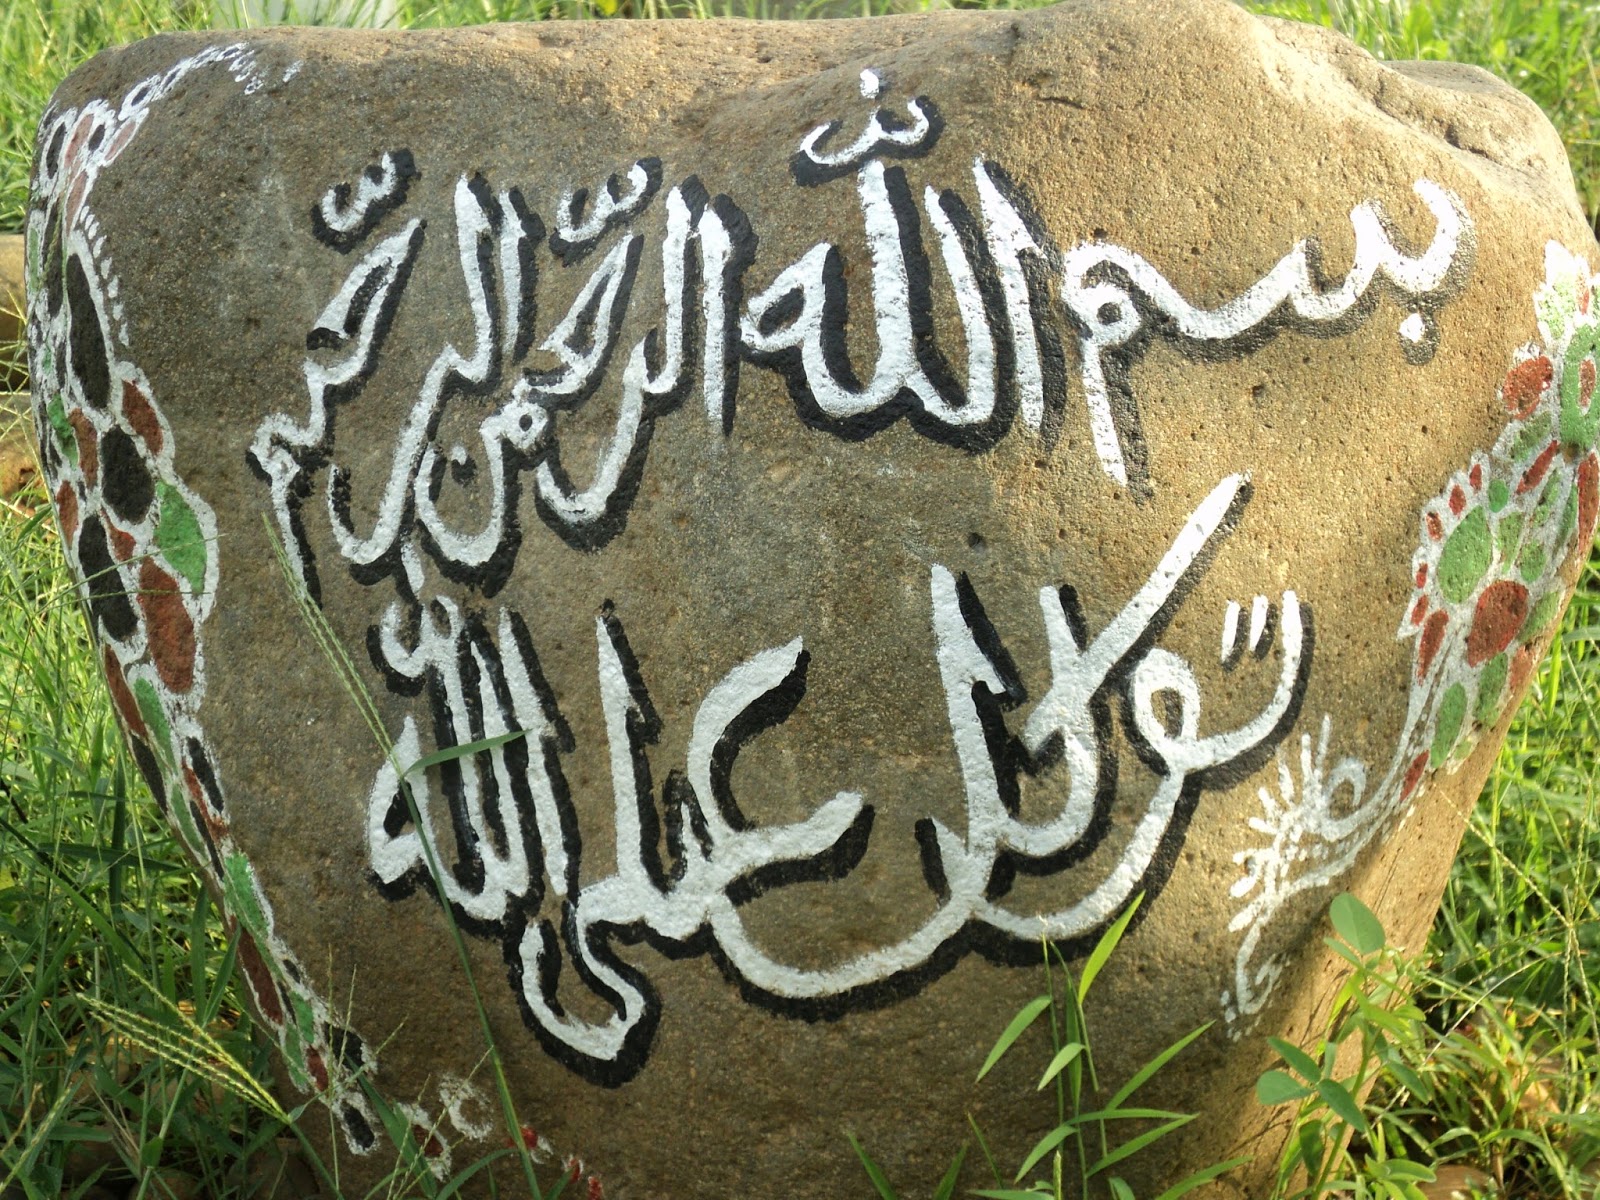 بسم الله الرحمن الرحيم
توكلا على الله